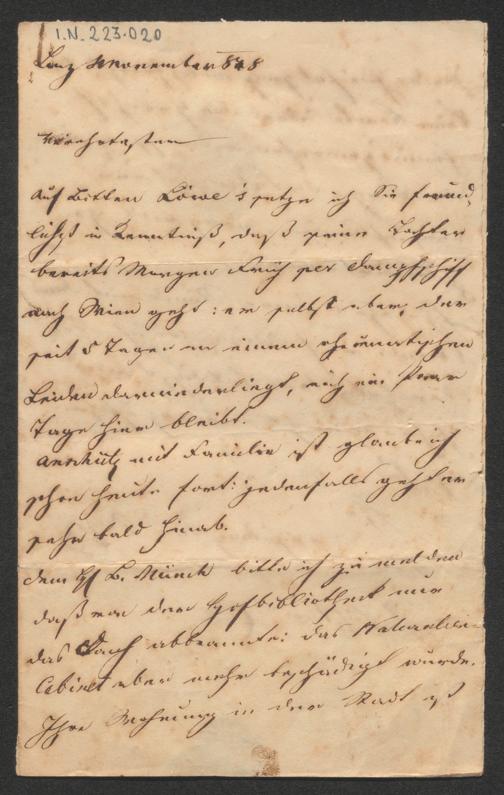 I.N. 223.020
Linz November 848
Verehrtester
Auf Bitten Löwe's setze ich Sie freund-
lichst in Kenntniß, daß seine Tochter
bereits Morgen Früh per Dampfschiff
nach Wien geht: er selbst aber, der
seit 5 Tagen an einem rheumatischen
Leiden darniederliegt, noch ein Paar
Tage hier bleibt.
Anschütz mit Familie ist glaube ich
schon heute fort: jedenfalls geht er
sehr bald hinab.
Dem B. Münch bitte ich zu melden
daß von der Hofbibliothek nur
das Dach abbrannte: das Naturalien-
Cabinet aber mehr beschädigt wurde.
Ihre Wohnung in der Stadt ist